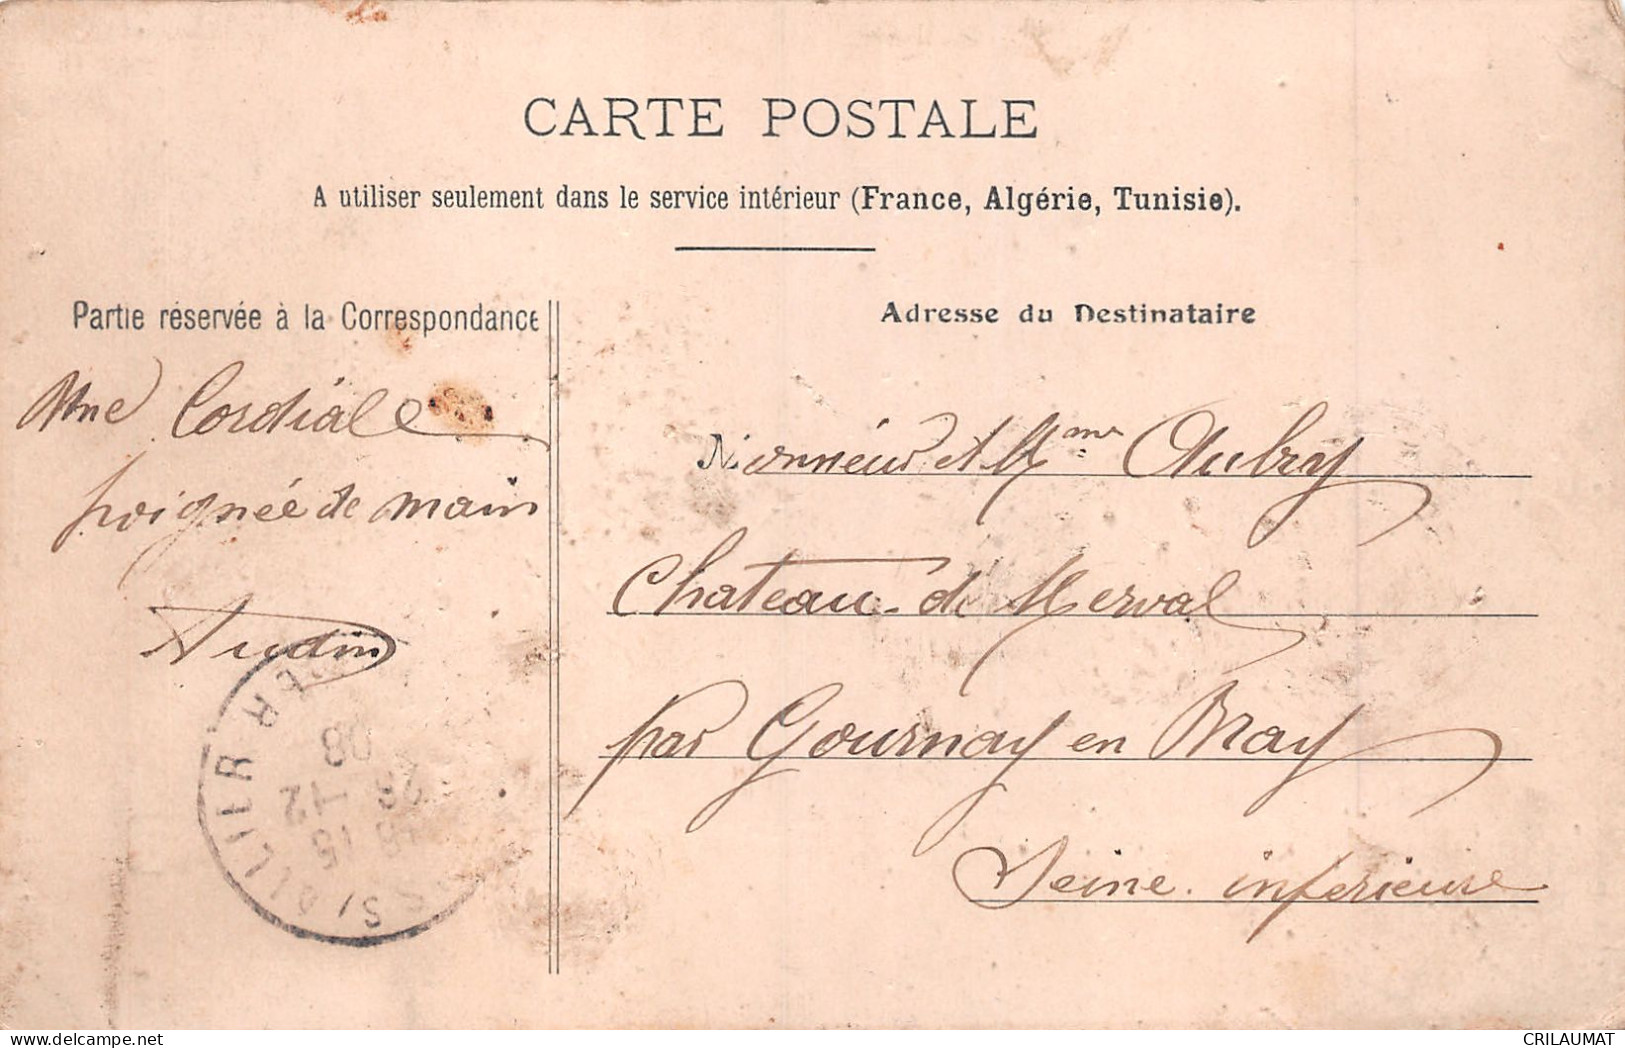 CARTE POSTALE
A utiliser seulement dans le service intérieur (France, Algérie, Tunisie).
Partie réservée à la Correspondance
Adresse du Destinataire
Une Cordiale
poignée de main
Audin
Monsieur et Mme Aubry
Chateau de Merval
par Gournay en Bray
Seine inferieure
15
28 -12
08
www.delcampe.net
CRILAUMAT